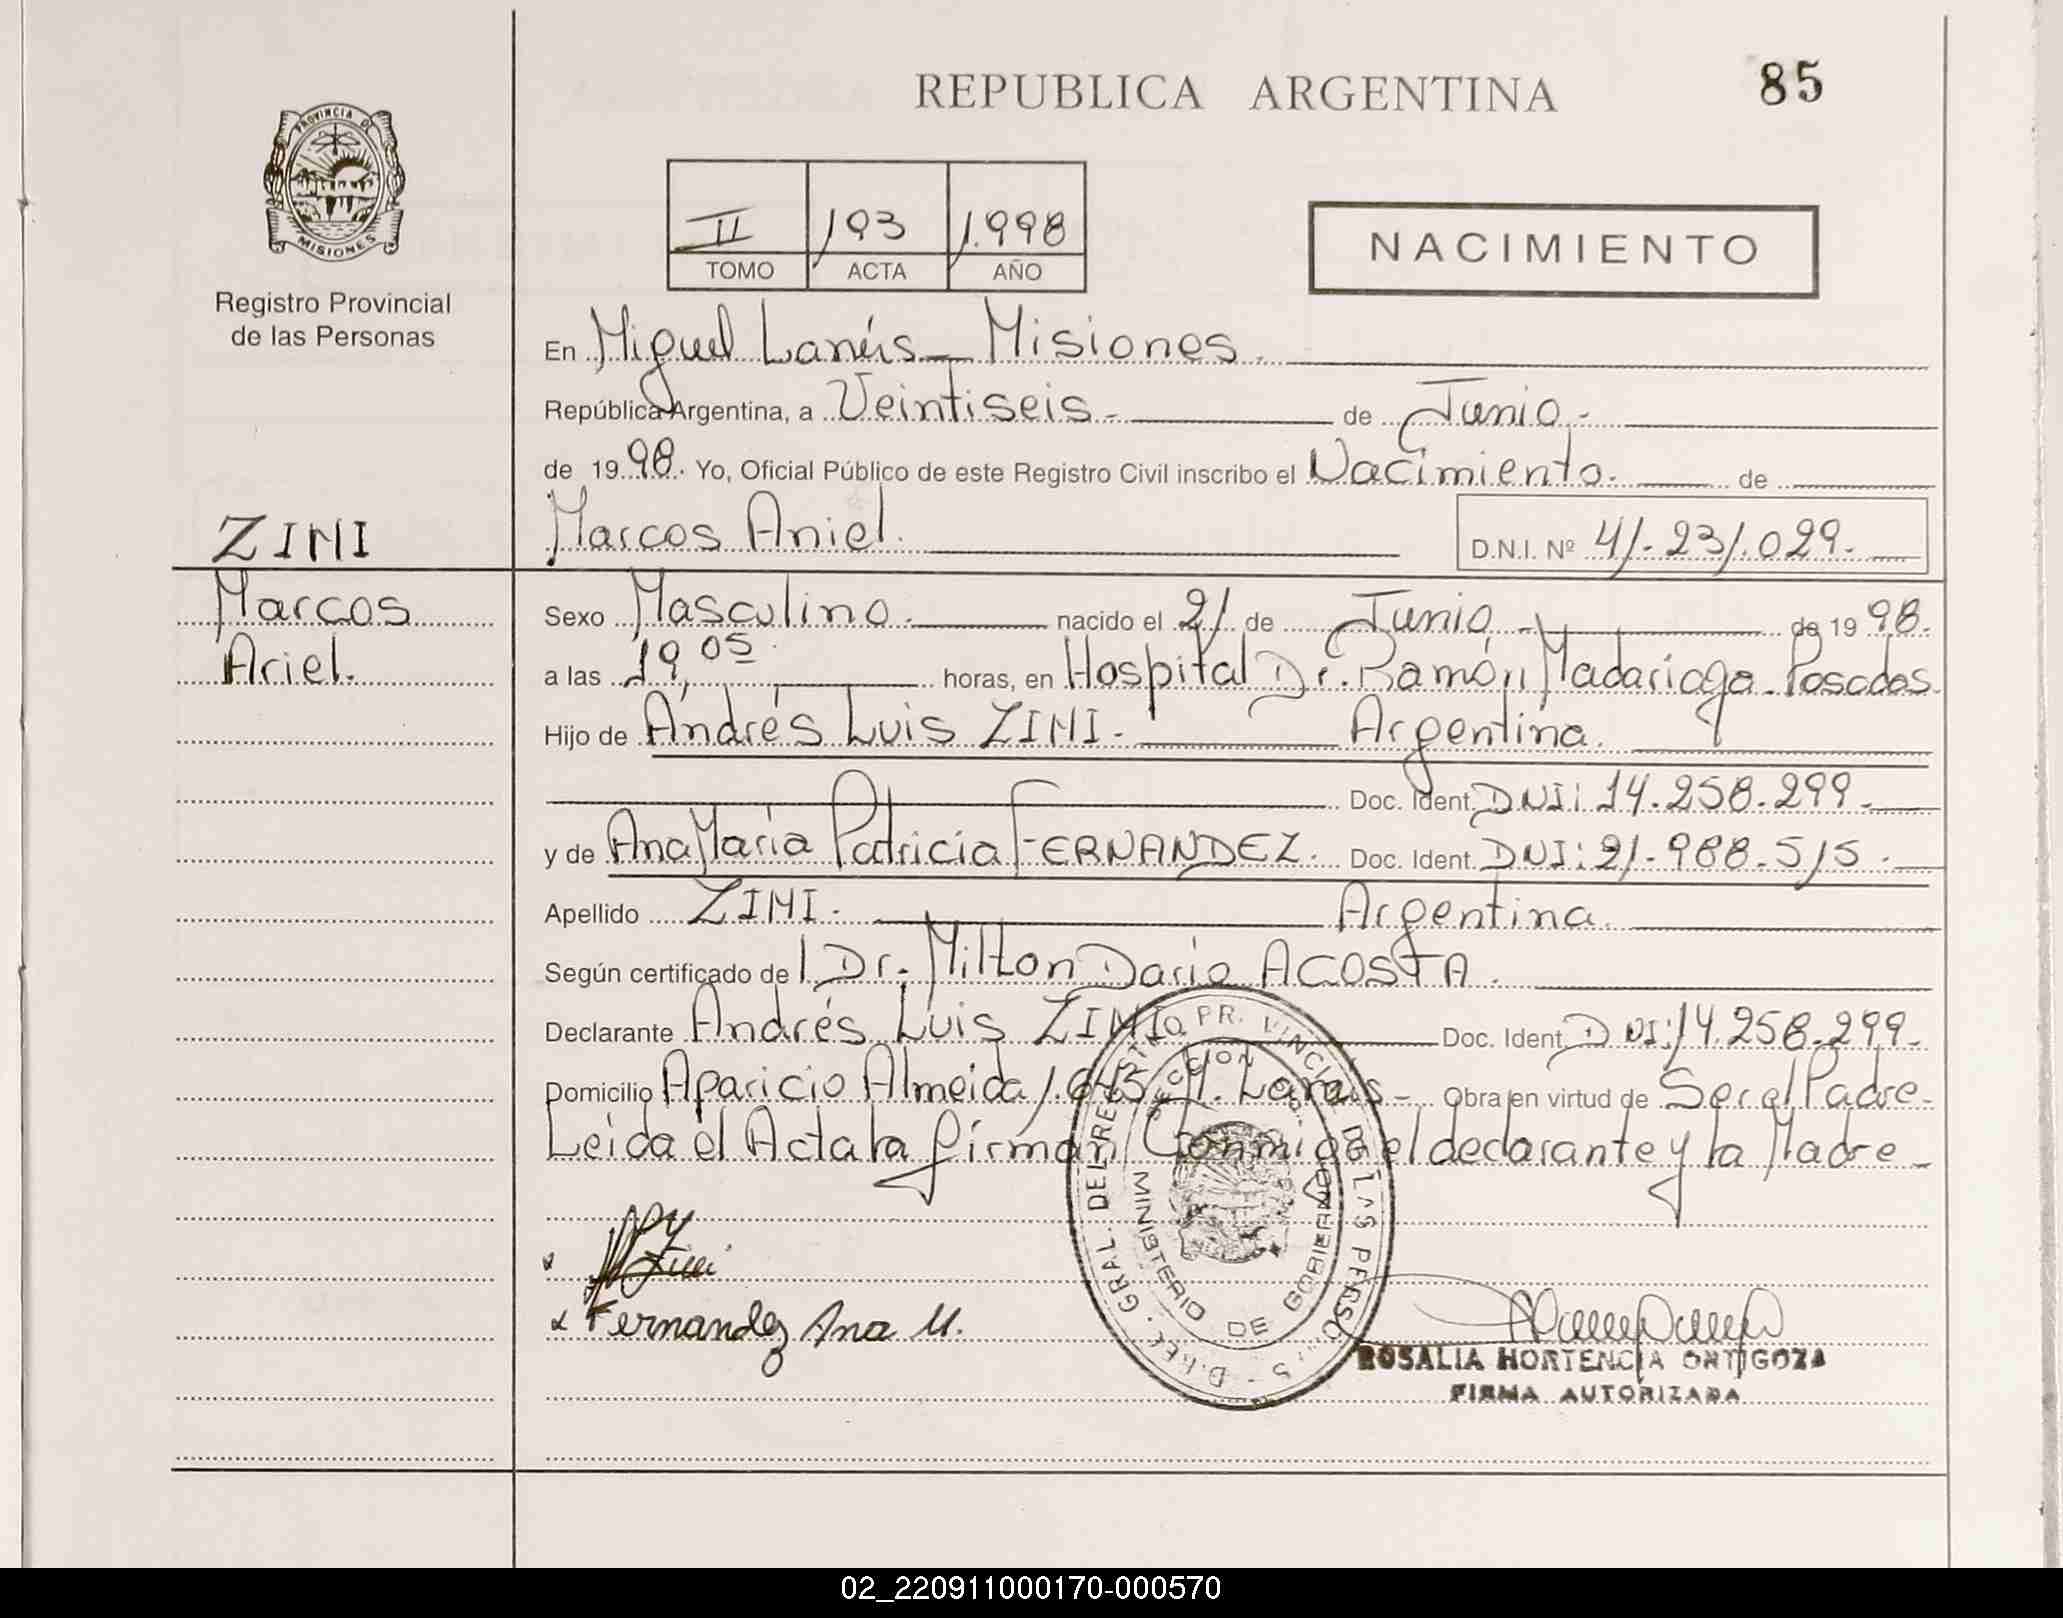 REPUBLICA ARGENTINA
85
PROVINCIA DE
MISIONES
Registro Provincial
de las Personas
II 193 1.998
TOMO ACTA AÑO
NACIMIENTO
En Miguel Lanús - Misiones.
República Argentina, a Veintiseis.- de Junio.-
de 1998. Yo, Oficial Público de este Registro Civil inscribo el Nacimiento. de
ZINI
Marcos Ariel.
Marcos Aniel.
D.N.I. Nº 41.231.029.-
Sexo Masculino. nacido el 21 de Junio.- de 1998.
a las 19,05 horas, en Hospital Dr. Ramón Madariaga. Posadas
Hijo de Andrés Luis ZINI.- Argentina.
Doc. Ident. DNI: 14.258.299.-
y de Ana María Patricia FERNANDEZ. Doc. Ident. DNI: 21.988.515.-
Apellido ZINI.- Argentina.
Según certificado de Dr. Milton Dario ACOSTA.
Declarante Andrés Luis ZINI. Doc. Ident. DNI: 14.258.299.-
Domicilio Aparicio Almeida 1.645 M. Lanús- Obra en virtud de Ser el Padre-
Leida el Acta la firman Conmigo el declarante y la Madre-
DIREC. GRAL. DEL REGISTRO PROVINCIAL DE LAS PERSONAS
MINISTERIO DE GOBIERNO
x Zini
x Fernandez Ana M.
ROSALIA HORTENCIA ORTIGOZA
FIRMA AUTORIZADA
02_220911000170-000570